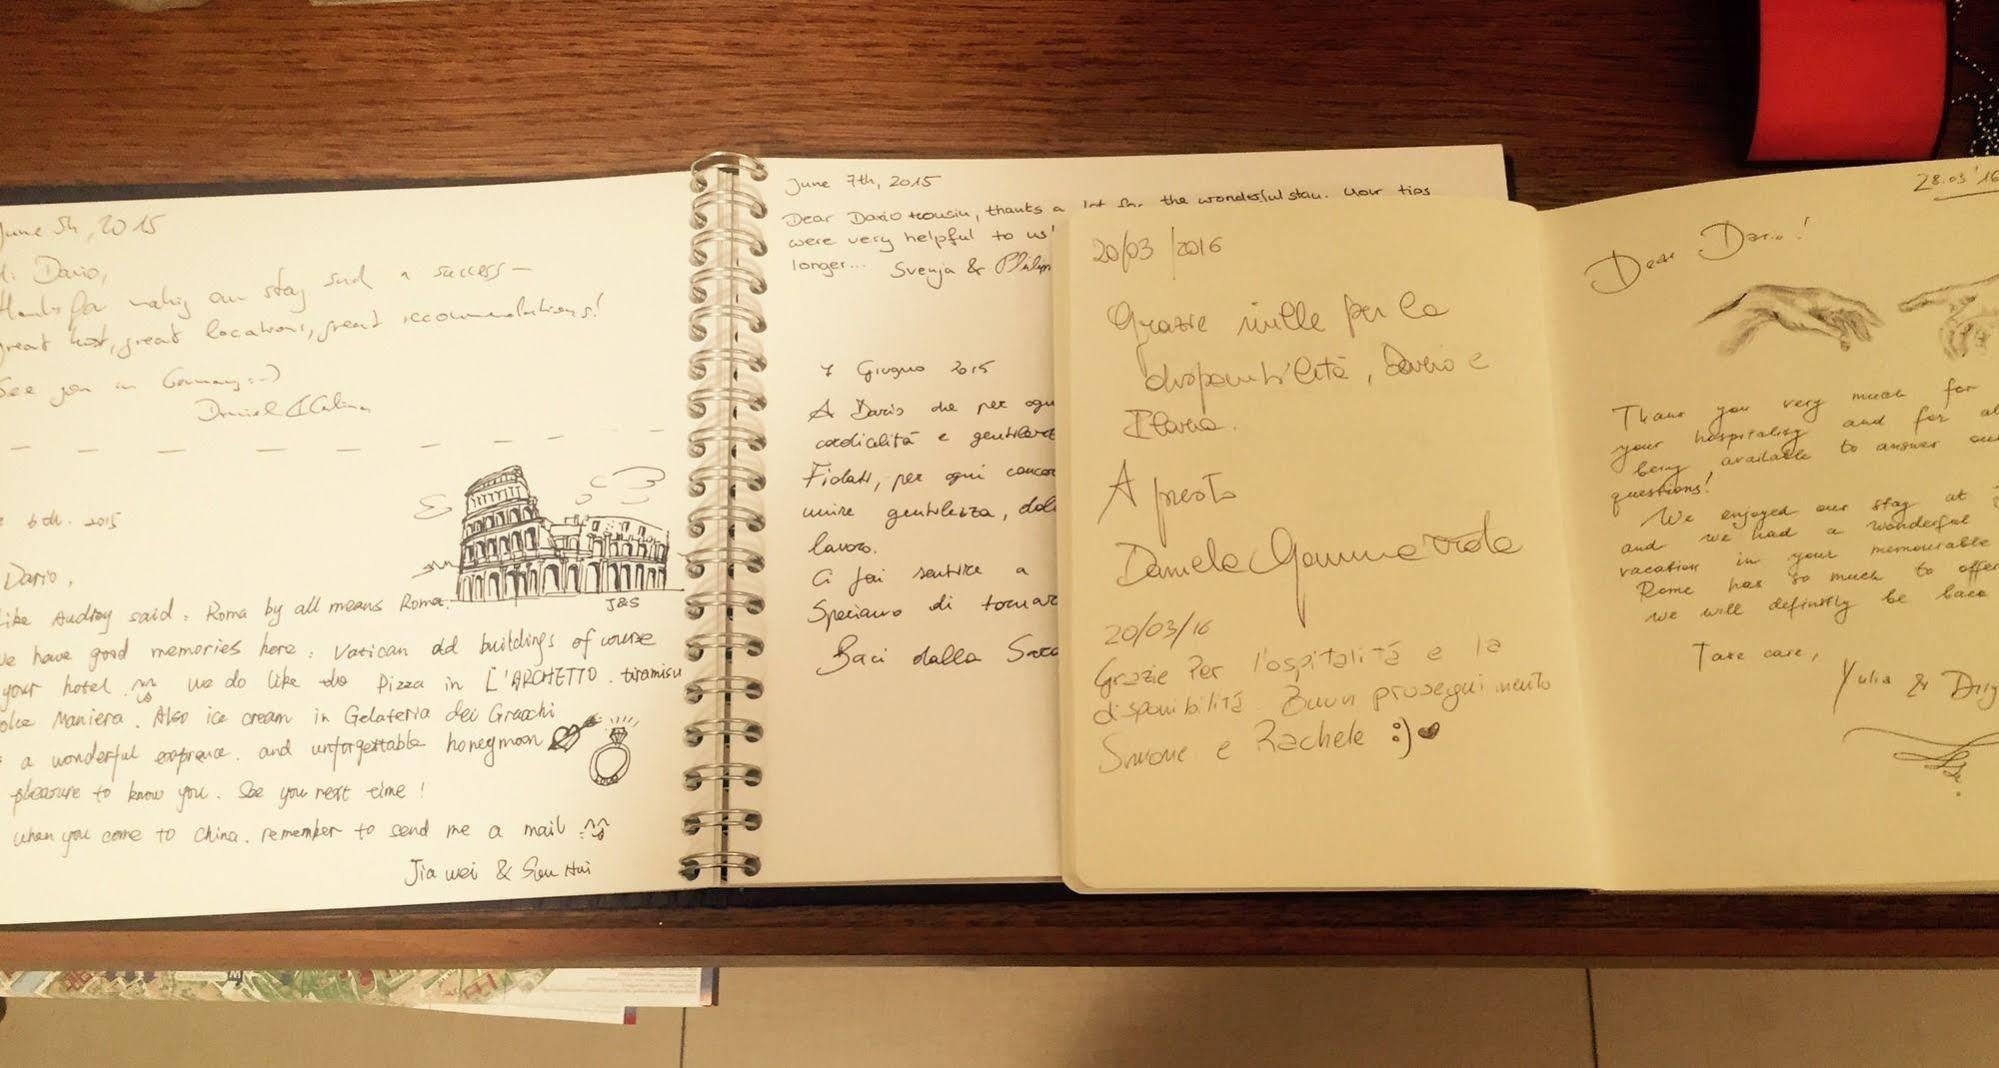 June 5th, 2015
Hi Dario,
thanks for making our stay such a success –
great host, great locations, great recommendations!
See you in Germany :-)
Daniel &
6th. 2015
Dario,
Like Audrey said: Roma by all means Roma.
J&S
We have good memories here: Vatican old buildings of course
your hotel. we do like the Pizza in L'ARCHETTO. tiramisu
Maniera. Also ice cream in Gelateria dei Gracchi
a wonderful exprience. and unforgettable honeymoon
pleasure to know you. See you next time!
when you come to China. remember to send me a mail ^^
Jia wei & Hui
June 7th, 2015
Dear Dario, thanks a lot for the wonderful stay. Your tips
were very helpful to us!
longer... Svenja & Philip
7 Giugno 2015
A Dario che per ogn
cordialità e gentilezz
per ogni
unire gentilezza,
lavoro.
Ci fai sentire a
Speriamo di tornar
Baci dalla
20/03/2016
Grazie mille per la
disponibilità, Dario e
Ilaria.
A presto
Daniela
20/03/16
Grazie per l'ospitalità e la
disponibilità. Buon proseguimento
Simone e Rachele :)
28.03'16
Dear Dario!
Thank you very much for
your hospitality and for al
being available to answer our
questions!
We enjoyed our stay at
and we had a wonderful
vacation in your memourable
Rome has so much to offer
we will definitly be back
Take care,
Yulia &